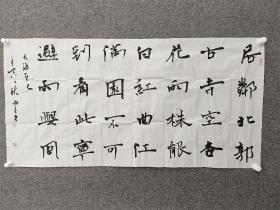 居鄰北郭
古寺空杏
花兩株能
白紅曲江
滿園不可
到看此寧
避雨與風